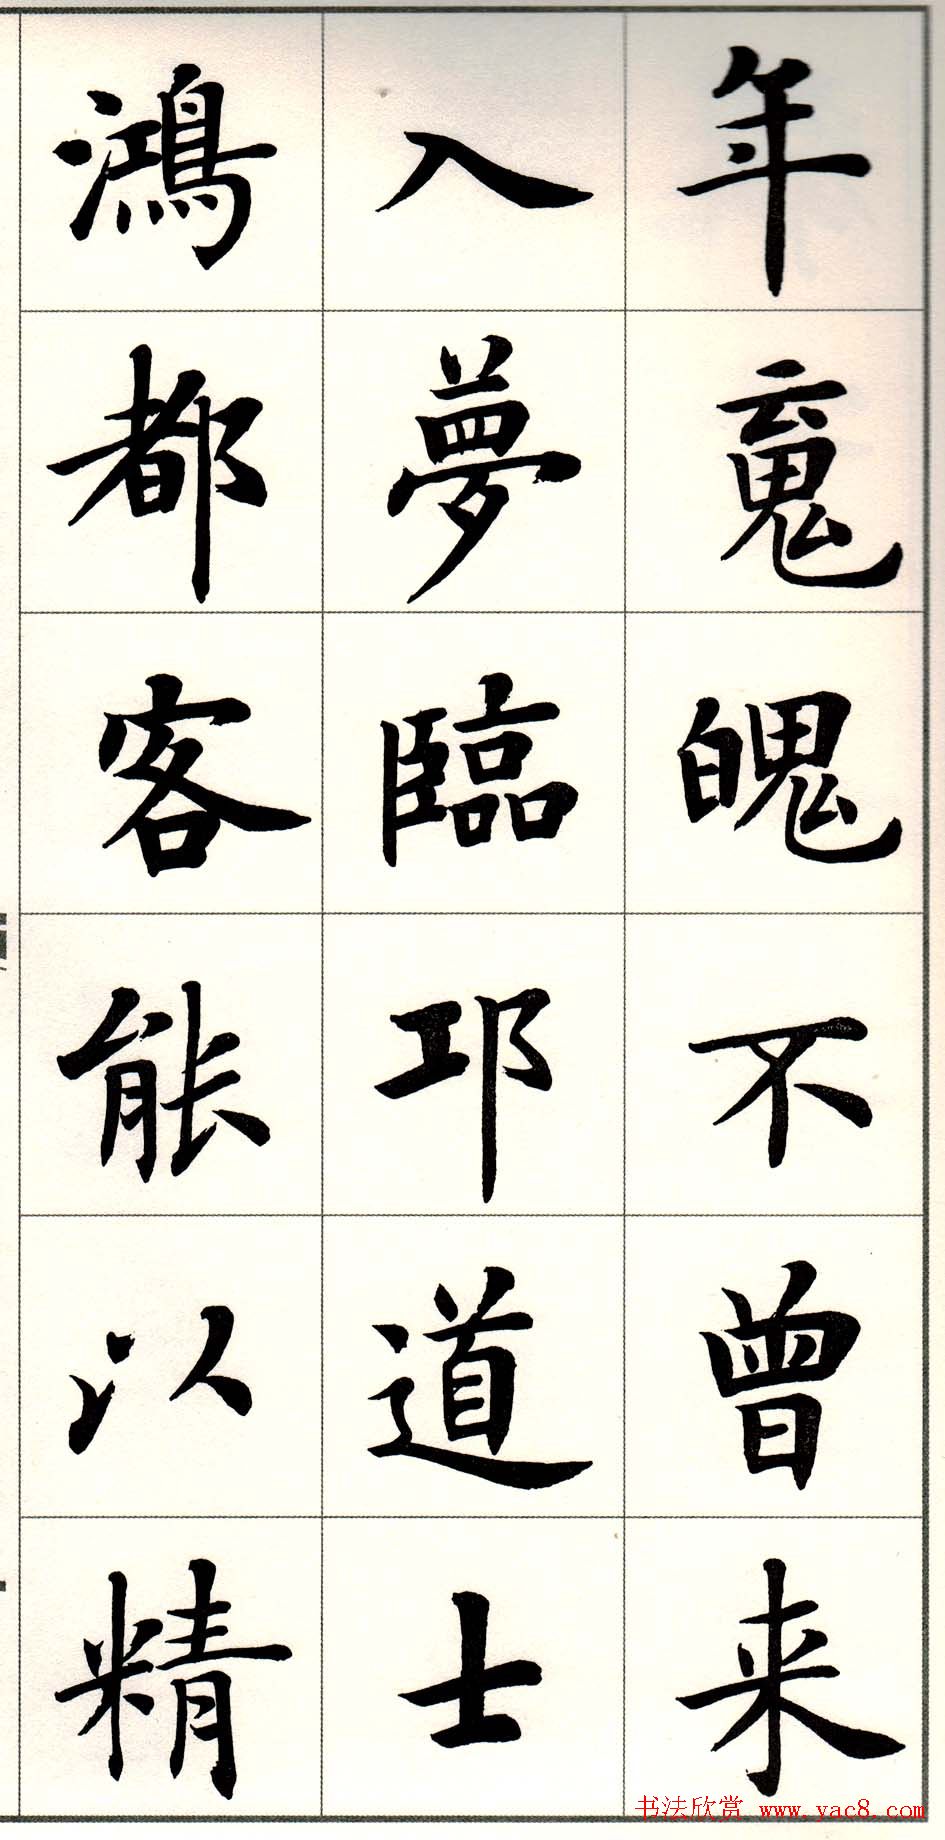 年䰟魄不曾来
入夢臨邛道士
鴻都客能以精
书法欣赏 www.yac8.com